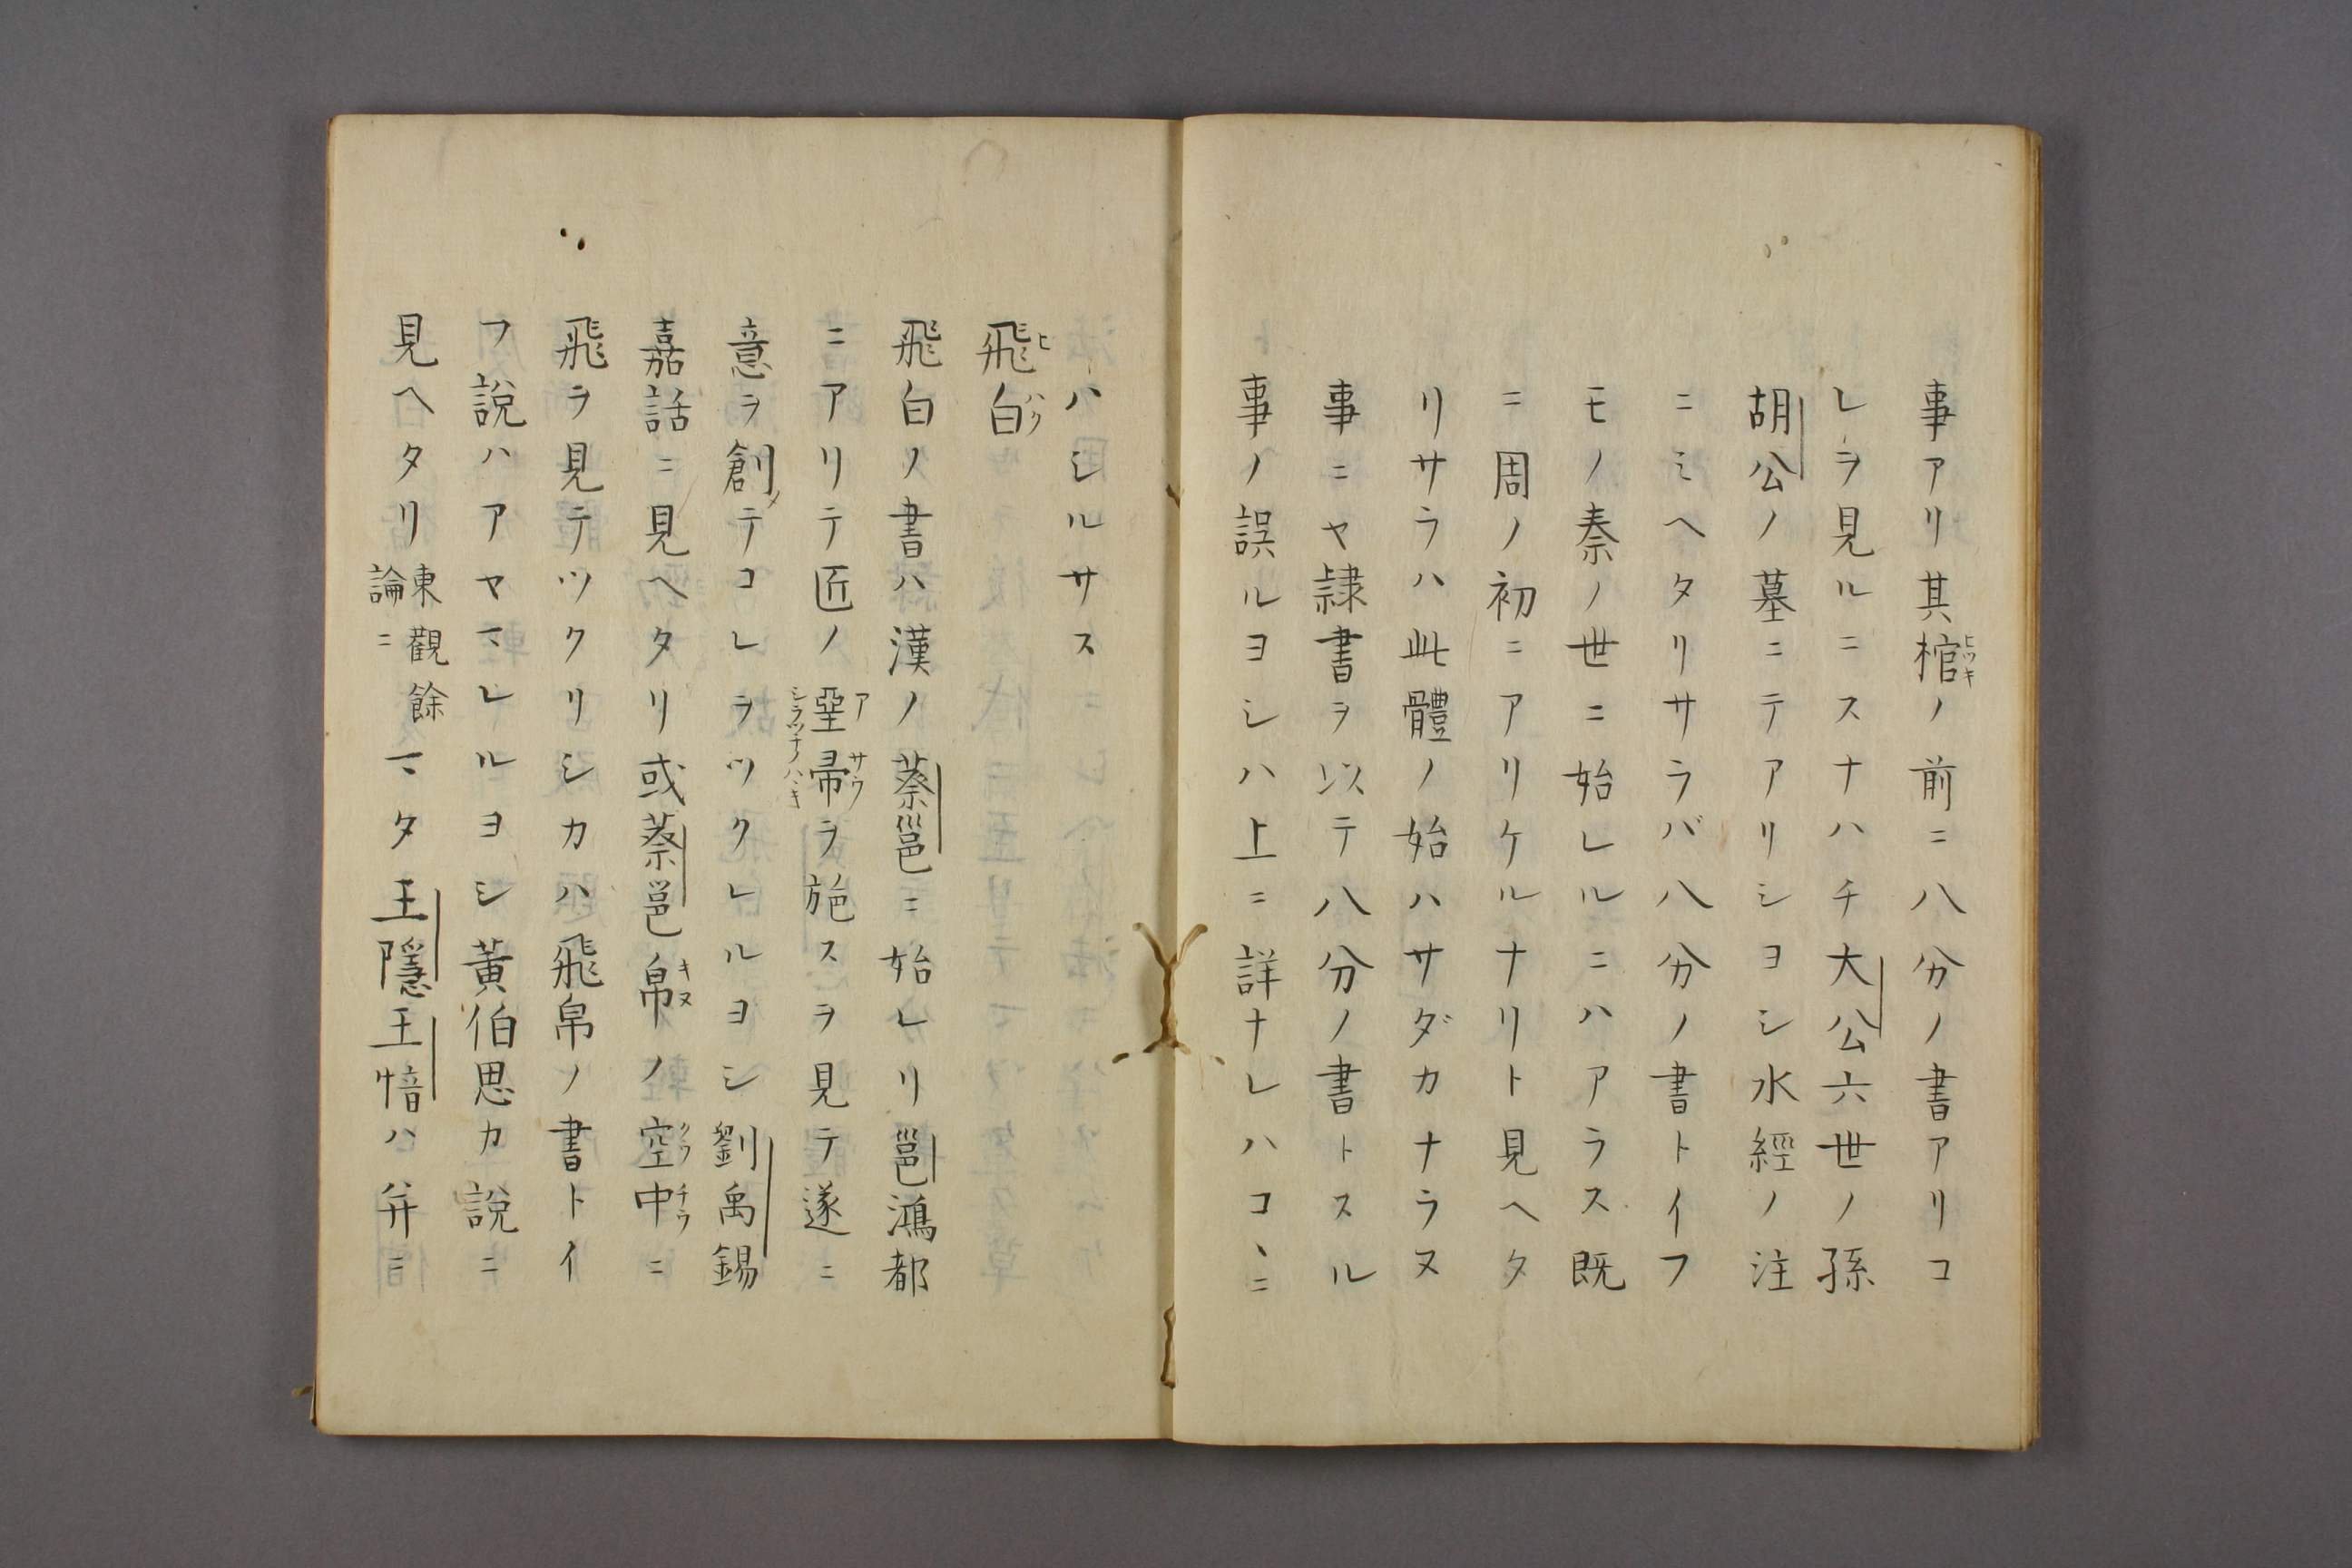 事アリ其棺ノ前ニ八分ノ書アリコ
ヒツキ
レヲ見ルニスナハチ大公六世ノ孫
胡公ノ墓ニテアリシヨシ水經ノ注
ニミヘタリサラバ八分ノ書トイフ
モノ秦ノ世ニ始レルニハアラス既
ニ周ノ初ニアリケルナリト見ヘタ
リサラハ此體ノ始ハサダカナラヌ
事ニヤ隷書ヲ以テ八分ノ書トスル
事ノ誤ルヨシハ上ニ詳ナレハコヽニ
ハシルサス
飛白
ヒハク
飛白ノ書ハ漢ノ蔡邕ニ始レリ邕鴻都
ニアリテ匠ノ堊帚ヲ施スヲ見テ遂ニ
アサウ
シラツチノハヽキ
意ヲ創テコレヲツクレルヨシ劉禹錫
メ
嘉話ニ見ヘタリ或蔡邕帛ノ空中ニ
キヌ
クウチウ
飛ヲ見テツクリシカハ飛帛ノ書トイ
フ說ハアヤマレルヨシ黃伯思カ說ニ
見ヘタリ
東觀餘
論ニ
マタ王隱王愔ハ并ニ